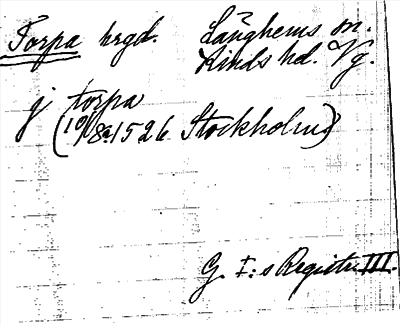 Torpa hrgd. Länghems sn.
Kinds hd. Vg.
j torpa
(10/8 a. 1526 Stockholm)
G. I:s Registr. III.